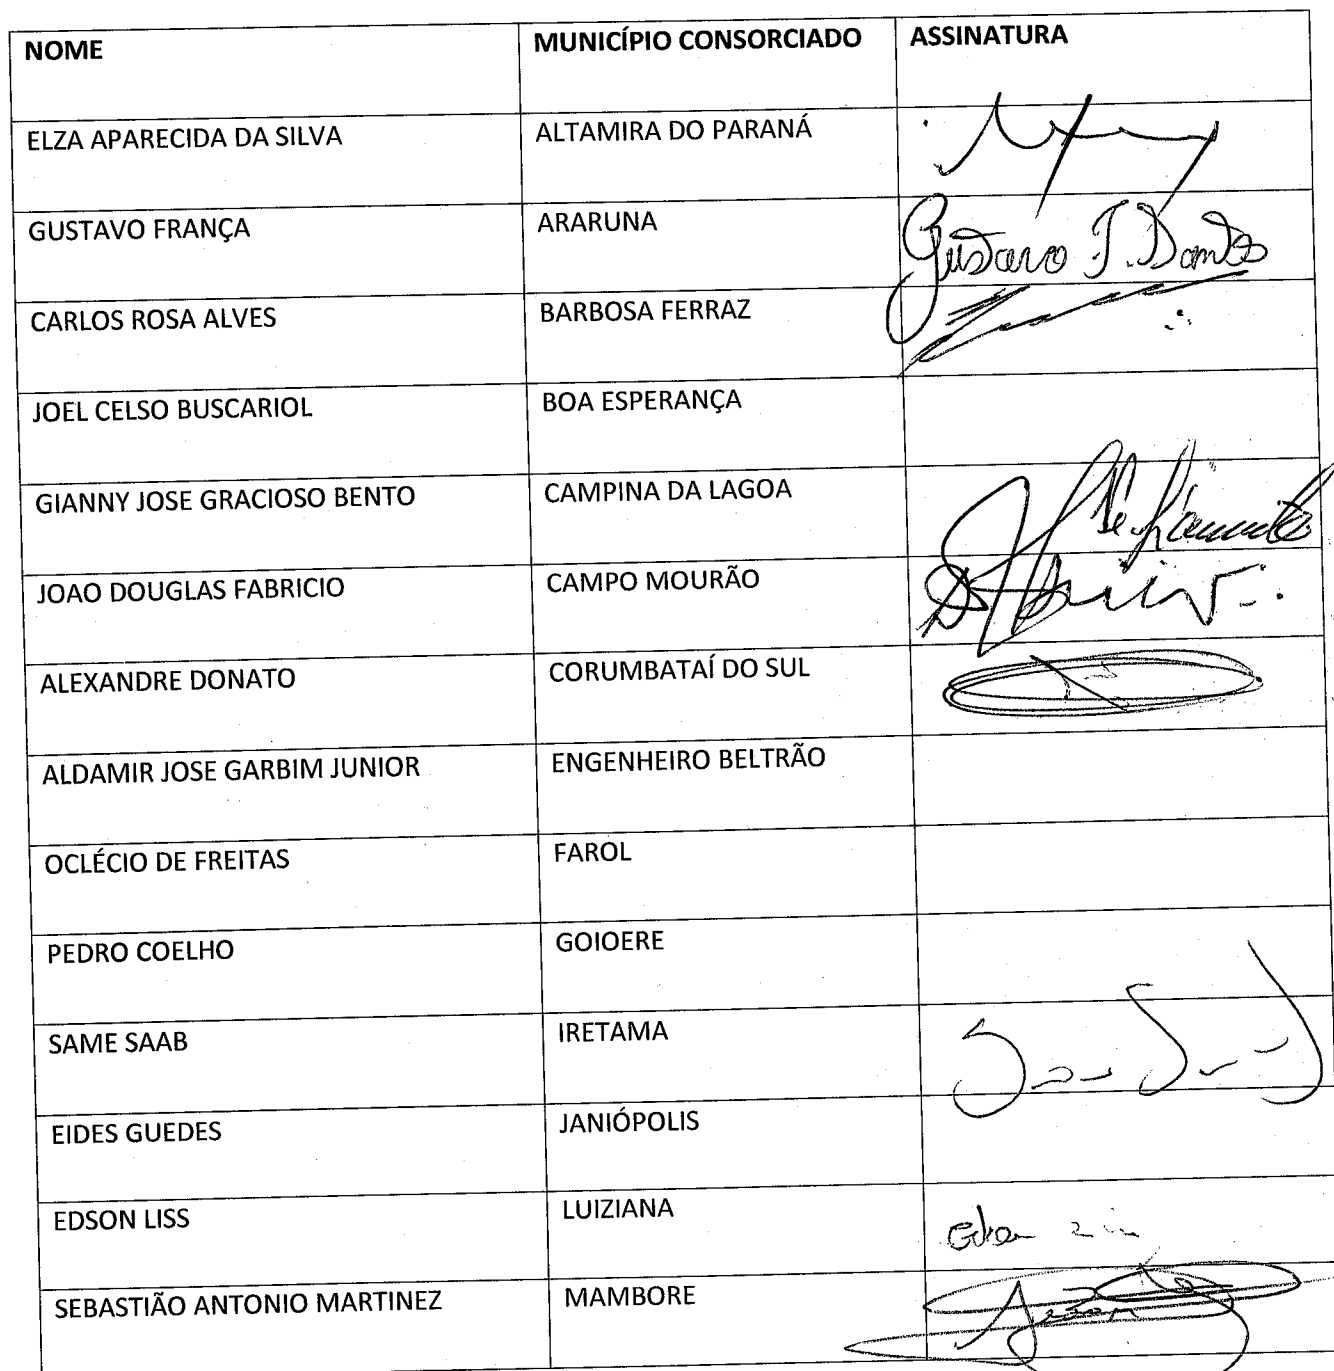 NOME MUNICÍPIO CONSORCIADO ASSINATURA
ELZA APARECIDA DA SILVA ALTAMIRA DO PARANÁ
GUSTAVO FRANÇA ARARUNA Gustavo
CARLOS ROSA ALVES BARBOSA FERRAZ
JOEL CELSO BUSCARIOL BOA ESPERANÇA
GIANNY JOSE GRACIOSO BENTO CAMPINA DA LAGOA
JOAO DOUGLAS FABRICIO CAMPO MOURÃO
ALEXANDRE DONATO CORUMBATAÍ DO SUL
ALDAMIR JOSE GARBIM JUNIOR ENGENHEIRO BELTRÃO
OCLÉCIO DE FREITAS FAROL
PEDRO COELHO GOIOERE
SAME SAAB IRETAMA
EIDES GUEDES JANIÓPOLIS
EDSON LISS LUIZIANA
SEBASTIÃO ANTONIO MARTINEZ MAMBORE